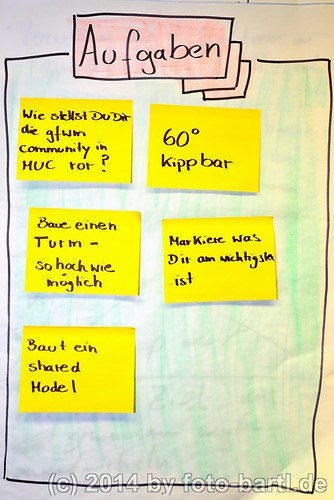 Aufgaben
Wie stellst Du Dir
die gfwm
community in
MUC vor?
60°
kippbar
Baue einen
Turm -
so hoch wie
möglich
Markiere was
Dir am wichtigsten
ist
Baut ein
shared
Model
(c) 2014 by foto-bartl.de